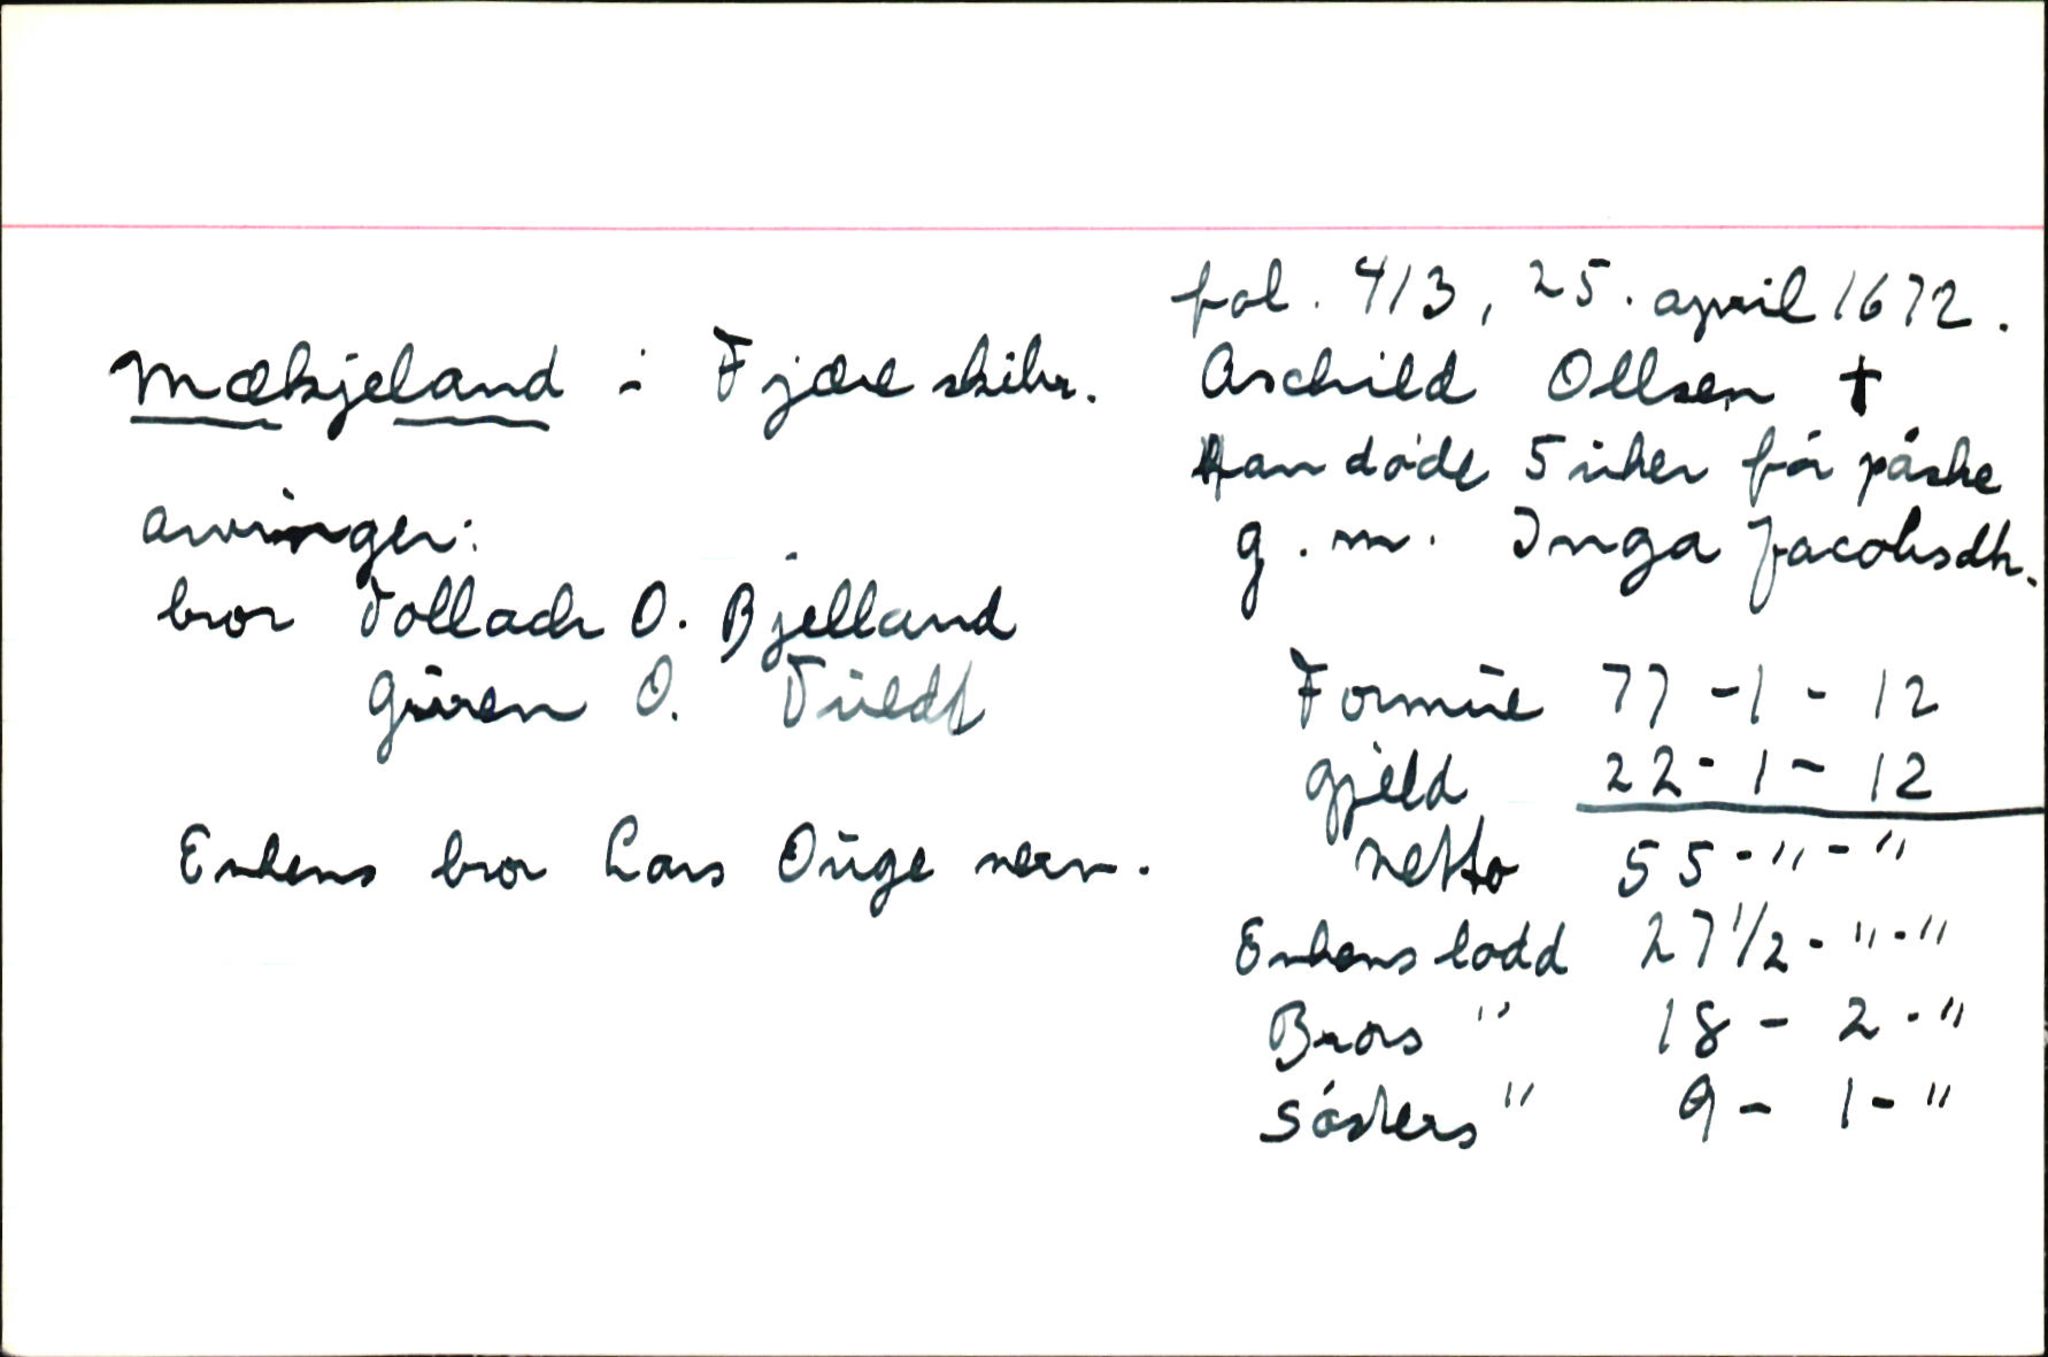 fol. 413, 25. april 1672.
Mækjeland i Fjære skibr. Aschild Ollsen †
Han døde 5 uker før påske
g. m. Inga Jacobsdtr.
arvinger:
bror Tollach O. Bjelland
Guren O. Tuedt
Formue 77 - 1 - 12
gjeld 22 - 1 - 12
netto 55 - " - "
Enkens bror Lars Ouge verv.
Enkens lodd 27 1/2 - " - "
Brors " 18 - 2 - "
Søsters " 9 - 1 - "